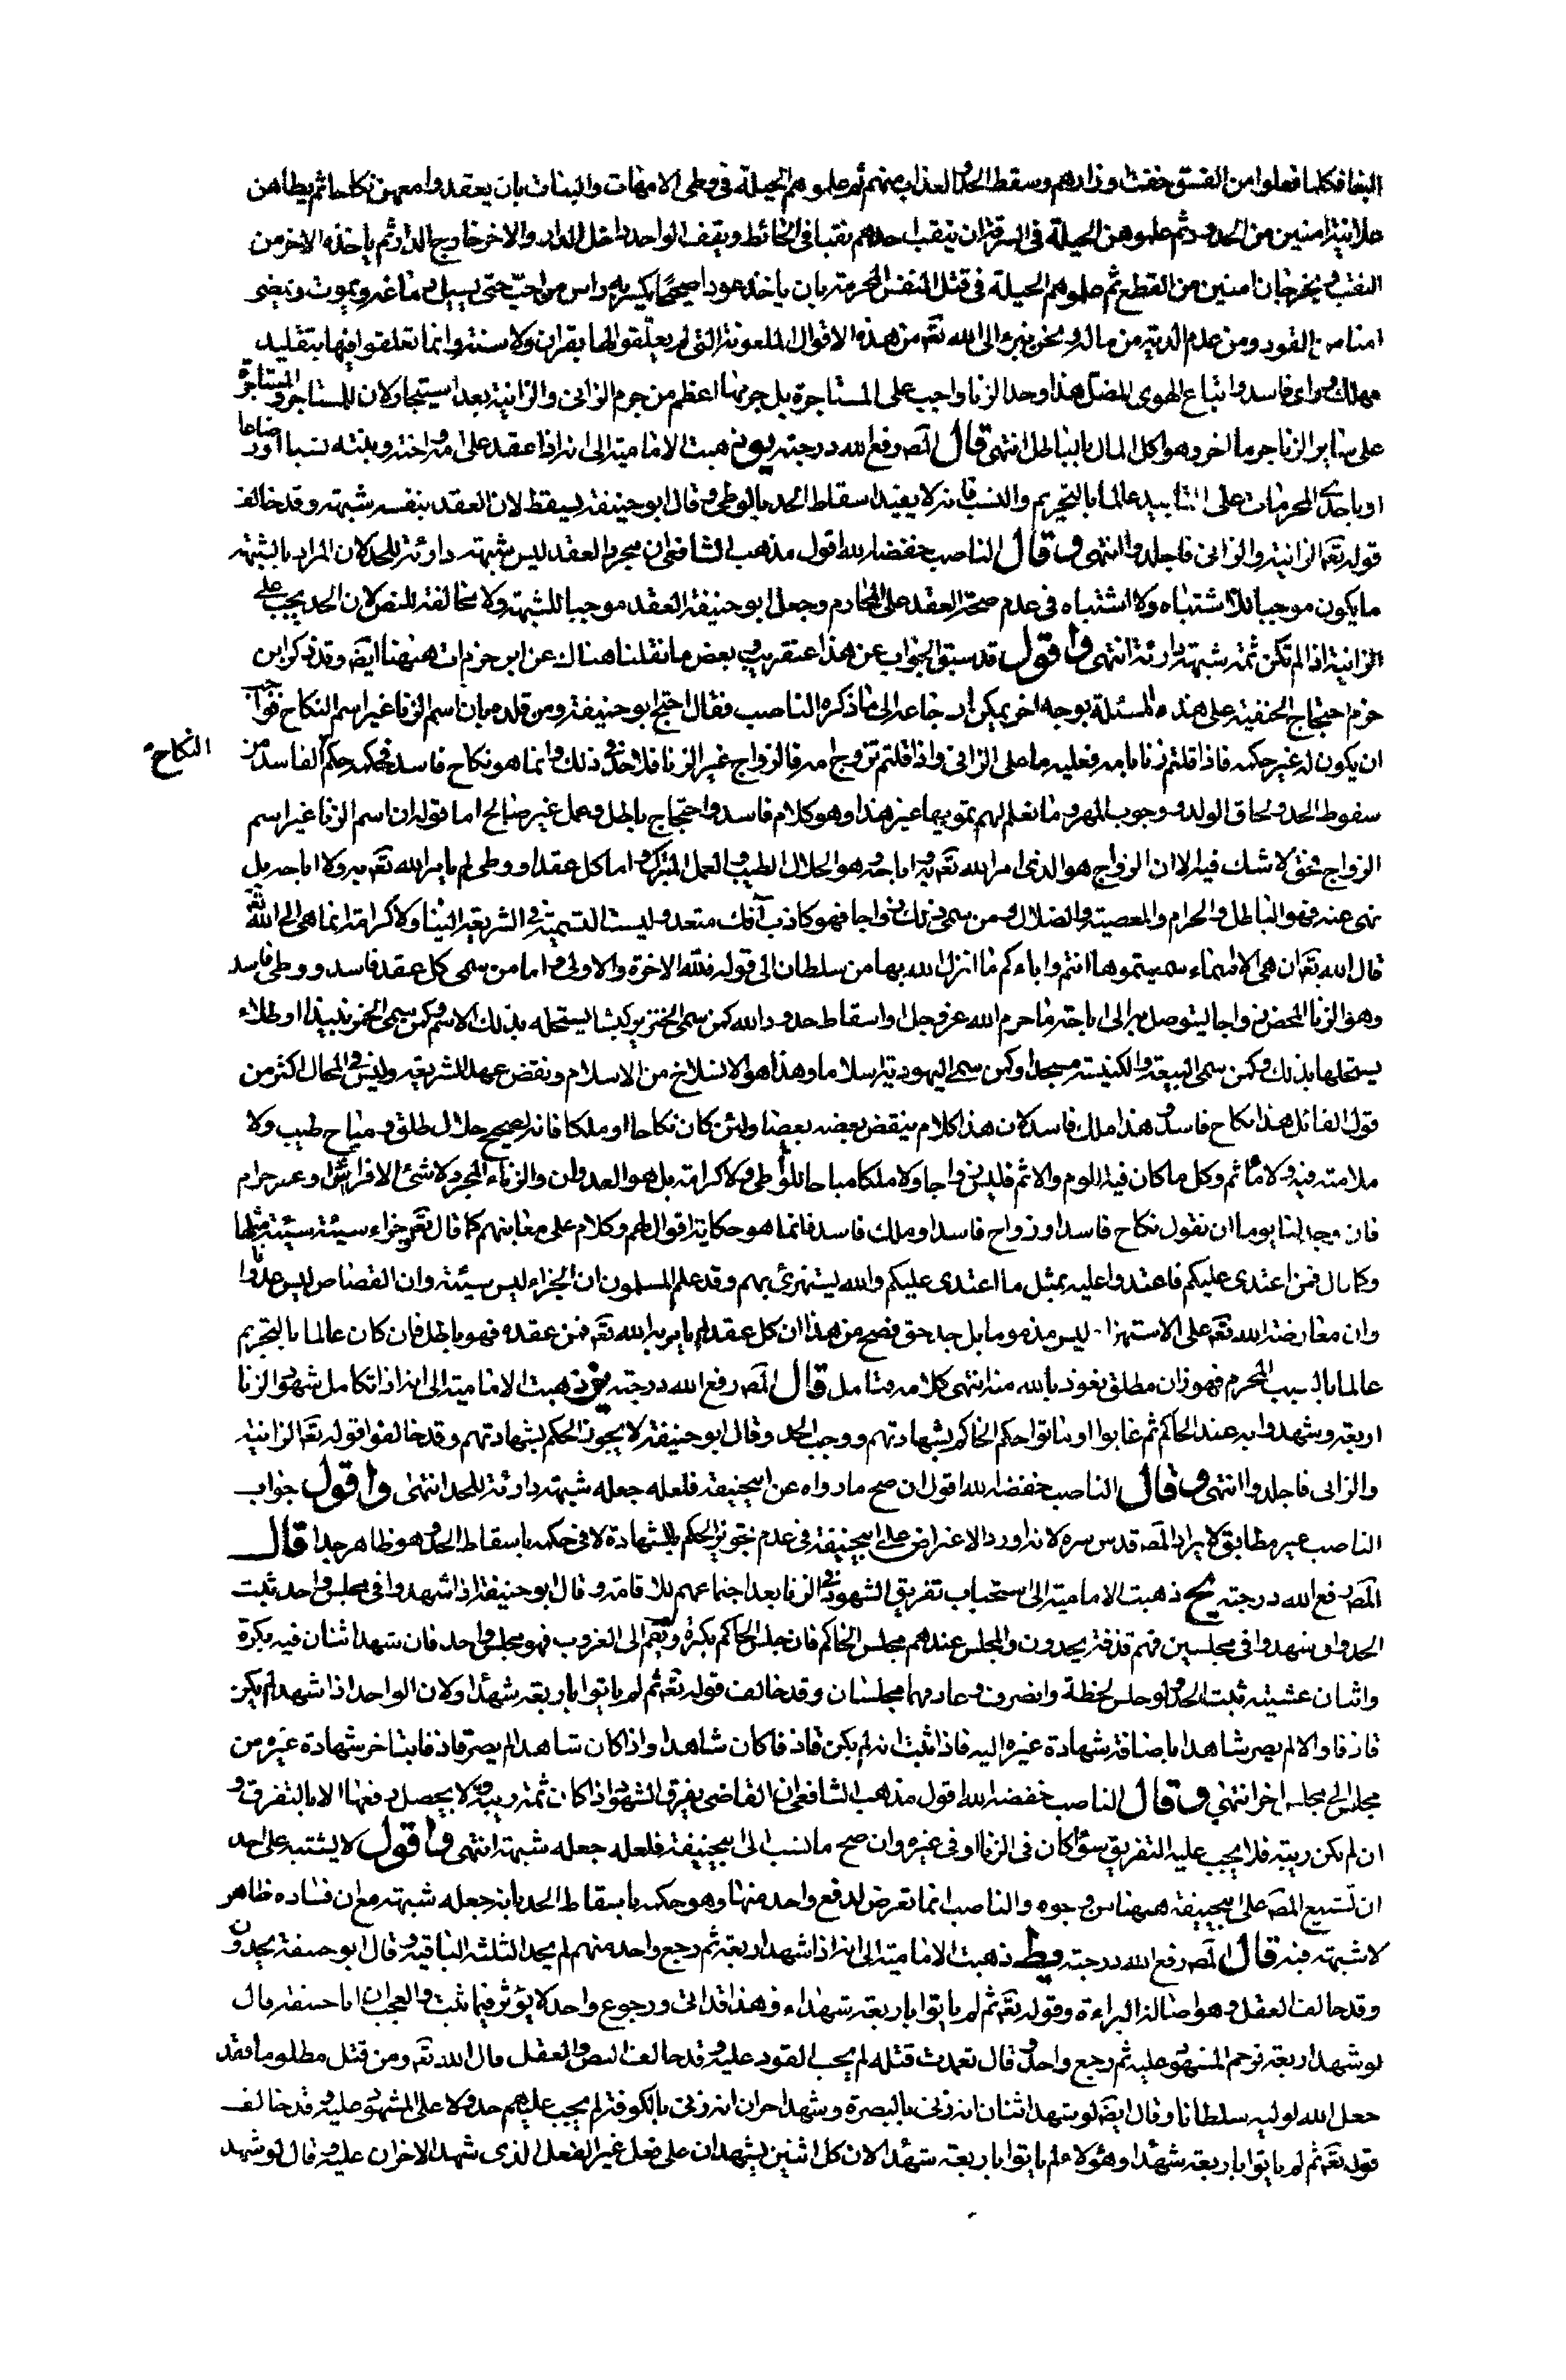 البغا فكلما فعلوا من الفسق خفت اوزارهم وسقط الحد العذاب عنهم ثم علموهم الحيلة فى وطى الامهات والبنات بان يعقدوا معهن نكاحا ثم يطاهن
علانية امنين من الحدود ثم علموهن الحيلة فى السرقة ان ينقب احدهم نقبا فى الحائط ويقف الواحد داخل الدار والاخر خارج الدار ثم ياخذه الاخر من
النقب ويخرجان امنين من القطع ثم علموهم الحيلة فى قتل النفس المحرمة بان ياخذ عودا صحيحا يكسر به راس من احب حتى يسيل دماغه ويموت ويمضى
امنا من القود ومن غرم الدية من ماله ونحن نبرء الى الله تعه من هذه الاقوال الملعونة التى لم يعلقوا لها بقران ولا سنة وانما تعلقوا فيها بتقليد
مهلك وراى فاسد واتباع الهوى المضل هذا وحد الزنا واجب على المستاجرة بل جرمها اعظم من جرم الزانى والزانية بعد استيجار لان للمستاجر والمستاجرة
على ساير الزنا جرما اخر وهو اكل المال بالباطل انتهى قال المص رفع الله درجته يو ذهبت الامامية الى انه اذا عقد على امه واخته وبنته نسبا او رضاعا
او باحدى المحرمات على التابيد عالما بالتحريم والنسب فانه لا يفيد اسقاط الحد بالوطى وقال ابو حنيفة يسقط لان العقد بنفسه شبهة وقد خالف
قوله تعه الزانية والزانى فاجلدوا انتهى وقال الناصب خفضه الله اقول مذهب الشافعى ان مجرد العقد ليس شبهة دارئة للحد لان المراد بالشبهة
ما يكون موجبا للاشتباه ولا اشتباه فى عدم صحة العقد على المحارم وجعل ابو حنيفة العقد موجبا للشبهة ولا مخالفة للنص لان الحد يجب على
الزانية اذا لم تكن ثمة شبهة دارئة انتهى واقول قد سبق الجواب عن هذا عنقريب وبعض ما نقلنا هناك عن ابن حزم ات ههنا ايضه وقد ذكر ابن
حزم احتجاج الحنفية على هذه المسئلة بوجه اخر يمكن ارجاعه الى ما ذكره الناصب فقال احتج ابو حنيفة ومن قلده بان اسم الزنا غير اسم النكاح فواجب
ان يكون له غير حكمه فاذا قلتم زنا بامه فعليه ما على الزانى واذا قلتم تزوج امه فالزواج غير الزنا فلا حد فى ذلك وانما هو نكاح فاسد فحكمه حكم الفاسد من
النكاح
سقوط الحد ولحاق الولد ووجوب المهر وما نعلم لهم تمويها غير هذا وهو كلام فاسد واحتجاج باطل وعمل غير صالح اما قوله ان اسم الزنا غير اسم
الزواج فحق لا شك فيه الا ان الزواج هو الذى امر الله تعه به واباحه وهو الحلال الطيب والعمل المتبرك واما كل عقد او وطى لم يامر الله تعه به ولا اباحه بل
نهى عنه فهو الباطل والحرام والمعصية والضلال ومن سمى ذلك زواجا فهو كاذب آفك متعد وليست التسمية فى الشريعة الينا ولا كرامة انما هى الى الله تعه
قال الله تعه ان هى الا اسماء سميتموها انتم واباءكم ما انزل الله بها من سلطان الى قوله فلله الاخرة والاولى واما من سمى كل عقد فاسد ووطى فاسد
وهو الزنا المحض زواجا ليتوصل به الى اباحة ما حرم الله عز وجل او اسقاط حدود الله كمن سمى الخنزير كبشا ليستحله بذلك الاسم وكمن سمى الخمر نبيذا او طلاء
ليستحلها بذلك وكمن سمى البيعة والكنيسة مسجدا وكمن سمى اليهودية اسلاما وهذا هو الانسلاخ من الاسلام ونقض عهد الشريعة وليس فى المحال اكثر من
قول القائل هذا نكاح فاسد وهذا ملك فاسد لان هذا كلام ينقض بعضه بعضا ولئن كان نكاحا او ملكا فانه لصحيح حلال طلق ومباح طيب ولا
ملامة فيه ولا ماثم وكل ما كان فيه اللوم والاثم فليس زواجا ولا ملكا مباحا للوطى ولا كرامة بل هو العدوان والزناء المجرد لا شئ الا فراش او عهر حرام
فان وجد لنا يوما ان نقول نكاح فاسد او زواج فاسد او ملك فاسد فانما هو حكاية اقوال لهم وكلام على معانيهم كما قال تعه وجزاء سيئة سيئة مثلها
وكما قال فمن اعتدى عليكم فاعتدوا عليه بمثل ما اعتدى عليكم والله يستهزئ بهم وقد علم المسلمون ان الجزاء ليس سيئة وان القصاص ليس عدوانا
وان معارضة الله تعه على الاستهزاء ليس مذموما بل جد حق فصح من هذا ان كل عقد لم يامر به الله تعه فمن عقده فهو باطل فان كان عالما بالتحريم
عالما بالسبب المحرم فهو زان مطلق نعوذ بالله منه انتهى كلامه فتامل قال المص رفع الله درجته يز ذهبت الامامية الى انه اذا تكامل شهود الزنا
اربعة وشهدوا به عند الحاكم ثم غابوا او ماتوا حكم الحاكم بشهادتهم ووجب الحد وقال ابو حنيفة لا يجوز الحكم بشهادتهم وقد خالفوا قوله تعه الزانية
والزانى فاجلدوا انتهى وقال الناصب خفضه الله اقول ان صح ما رواه عن ابيحنيفة فلعله جعله شبهة دارئة للحد انتهى واقول جواب
الناصب غير مطابق لايراد المص قدس سره لانه اورد الاعتراض على ابيحنيفة فى عدم تجويز الحكم بالشهادة لا فى حكمه باسقاط الحد وهو ظاهر جدا قال
المص رفع الله درجته يح ذهبت الامامية الى استحباب تفريق الشهود فى الزنا بعد اجتماعهم للاقامة وقال ابو حنيفة اذا شهدوا فى مجلس واحد ثبت
الحد وان شهدوا فى مجلسين فهم قذفة يحدون والمجلس عندهم مجلس الحاكم فان جلس الحاكم بكرة ولم يقم الى الغروب فهو مجلس واحد فان شهد اثنان فيه بكرة
واثنان عشية ثبت الحد ولو جلس لحظة وانصرف وعاد فهما مجلسان وقد خالف قوله تعه ثم لم ياتوا باربعة شهدا ولان الواحد اذا شهد لم يكن
قاذفا والا لم يصر شاهدا باضافة شهادة غيره اليه فاذا ثبت انه لم يكن قاذفا كان شاهدا واذا كان شاهدا لم يصر قاذفا بتاخر شهادة غيره من
مجلس الى مجلس اخر انتهى وقال الناصب خفضه الله اقول مذهب الشافعى ان القاضى يفرق الشهود اذا كان ثمة ريبة ولا يحصل دفعها الا بالتفرق و
ان لم يكن ريبة فلا يجب عليه التفريق سواء كان فى الزنا او فى غيره وان صح ما نسب الى ابيحنيفة فلعله جعله شبهة انتهى واقول لا يشتبه على احد
ان تشنيع المص على ابيحنيفة ههنا من وجوه والناصب انما تعرض لدفع واحد منها وهو حكمه باسقاط الحد بانه جعله شبهة مع ان فساده ظاهر
لا شبهة فيه قال المص رفع الله درجته يط ذهبت الامامية الى انه اذا شهد اربعة ثم رجع واحد منهم لم يحد الثلثة الباقية وقال ابو حنيفة يحدون
وقد خالف العقل وهو اصالة البراءة وقوله تعه ثم لم ياتوا باربعة شهداء وهذا قد اتى ورجوع واحد لا يؤثر فيما ثبت والعجب ان ابا حنيفة قال
لو شهد اربعة فرجم المشهود عليه ثم رجع واحد وقال تعمدت قتله لم يجب القود عليه وقد خالف النص والعقل قال الله تعه ومن قتل مظلوما فقد
جعل الله لوليه سلطانا وقال ايضه لو شهد اثنان انه زنى بالبصرة وشهد اخران انه زنى بالكوفة لم يجب عليهم حد ولا على المشهود عليه وقد خالف
قوله تعه ثم لم ياتوا باربعة شهدا وهؤلاء لم ياتوا باربعة شهدا لان كل اثنين يشهدان على فعل غير الفعل الذى شهد الاخران عليه وقال لو شهد